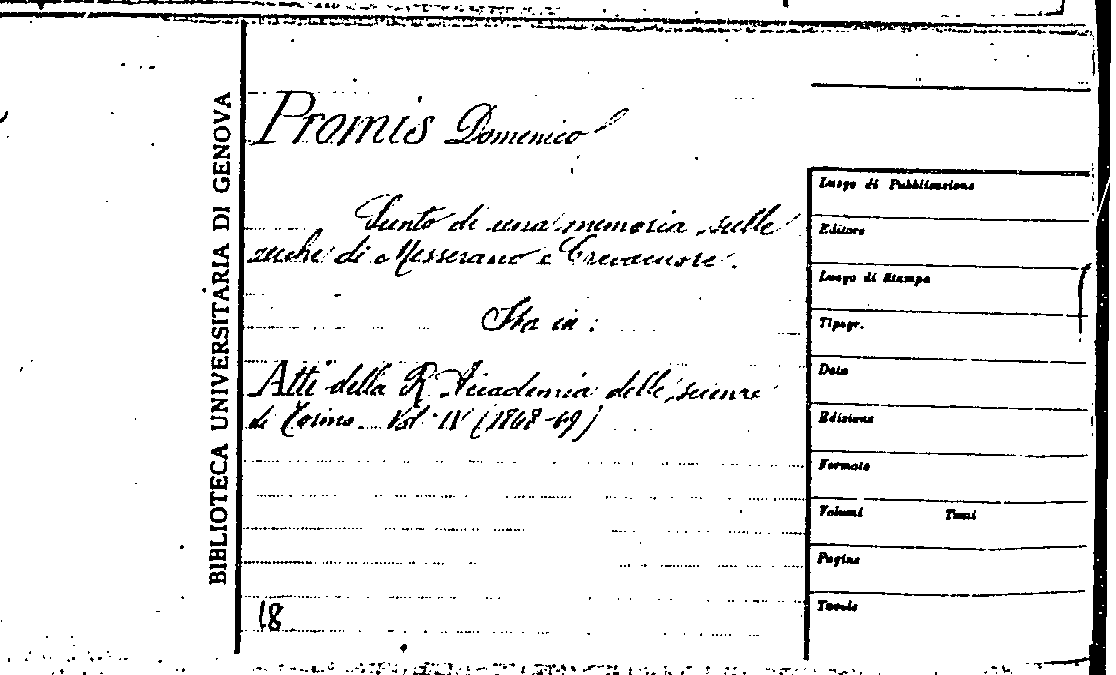 BIBLIOTECA UNIVERSITARIA DI GENOVA
Promis Domenico
Sunto di una memoria sulle
zecche di Messerano e Crevacuore.
Sta in:
Atti della R. Accademia delle scienze
di Torino. Vol. IV (1868-69)
18
Luogo di Pubblicazione
Editore
Luogo di Stampa
Tipogr.
Data
Edizione
Formato
Volumi Tomi
Pagine
Tavole